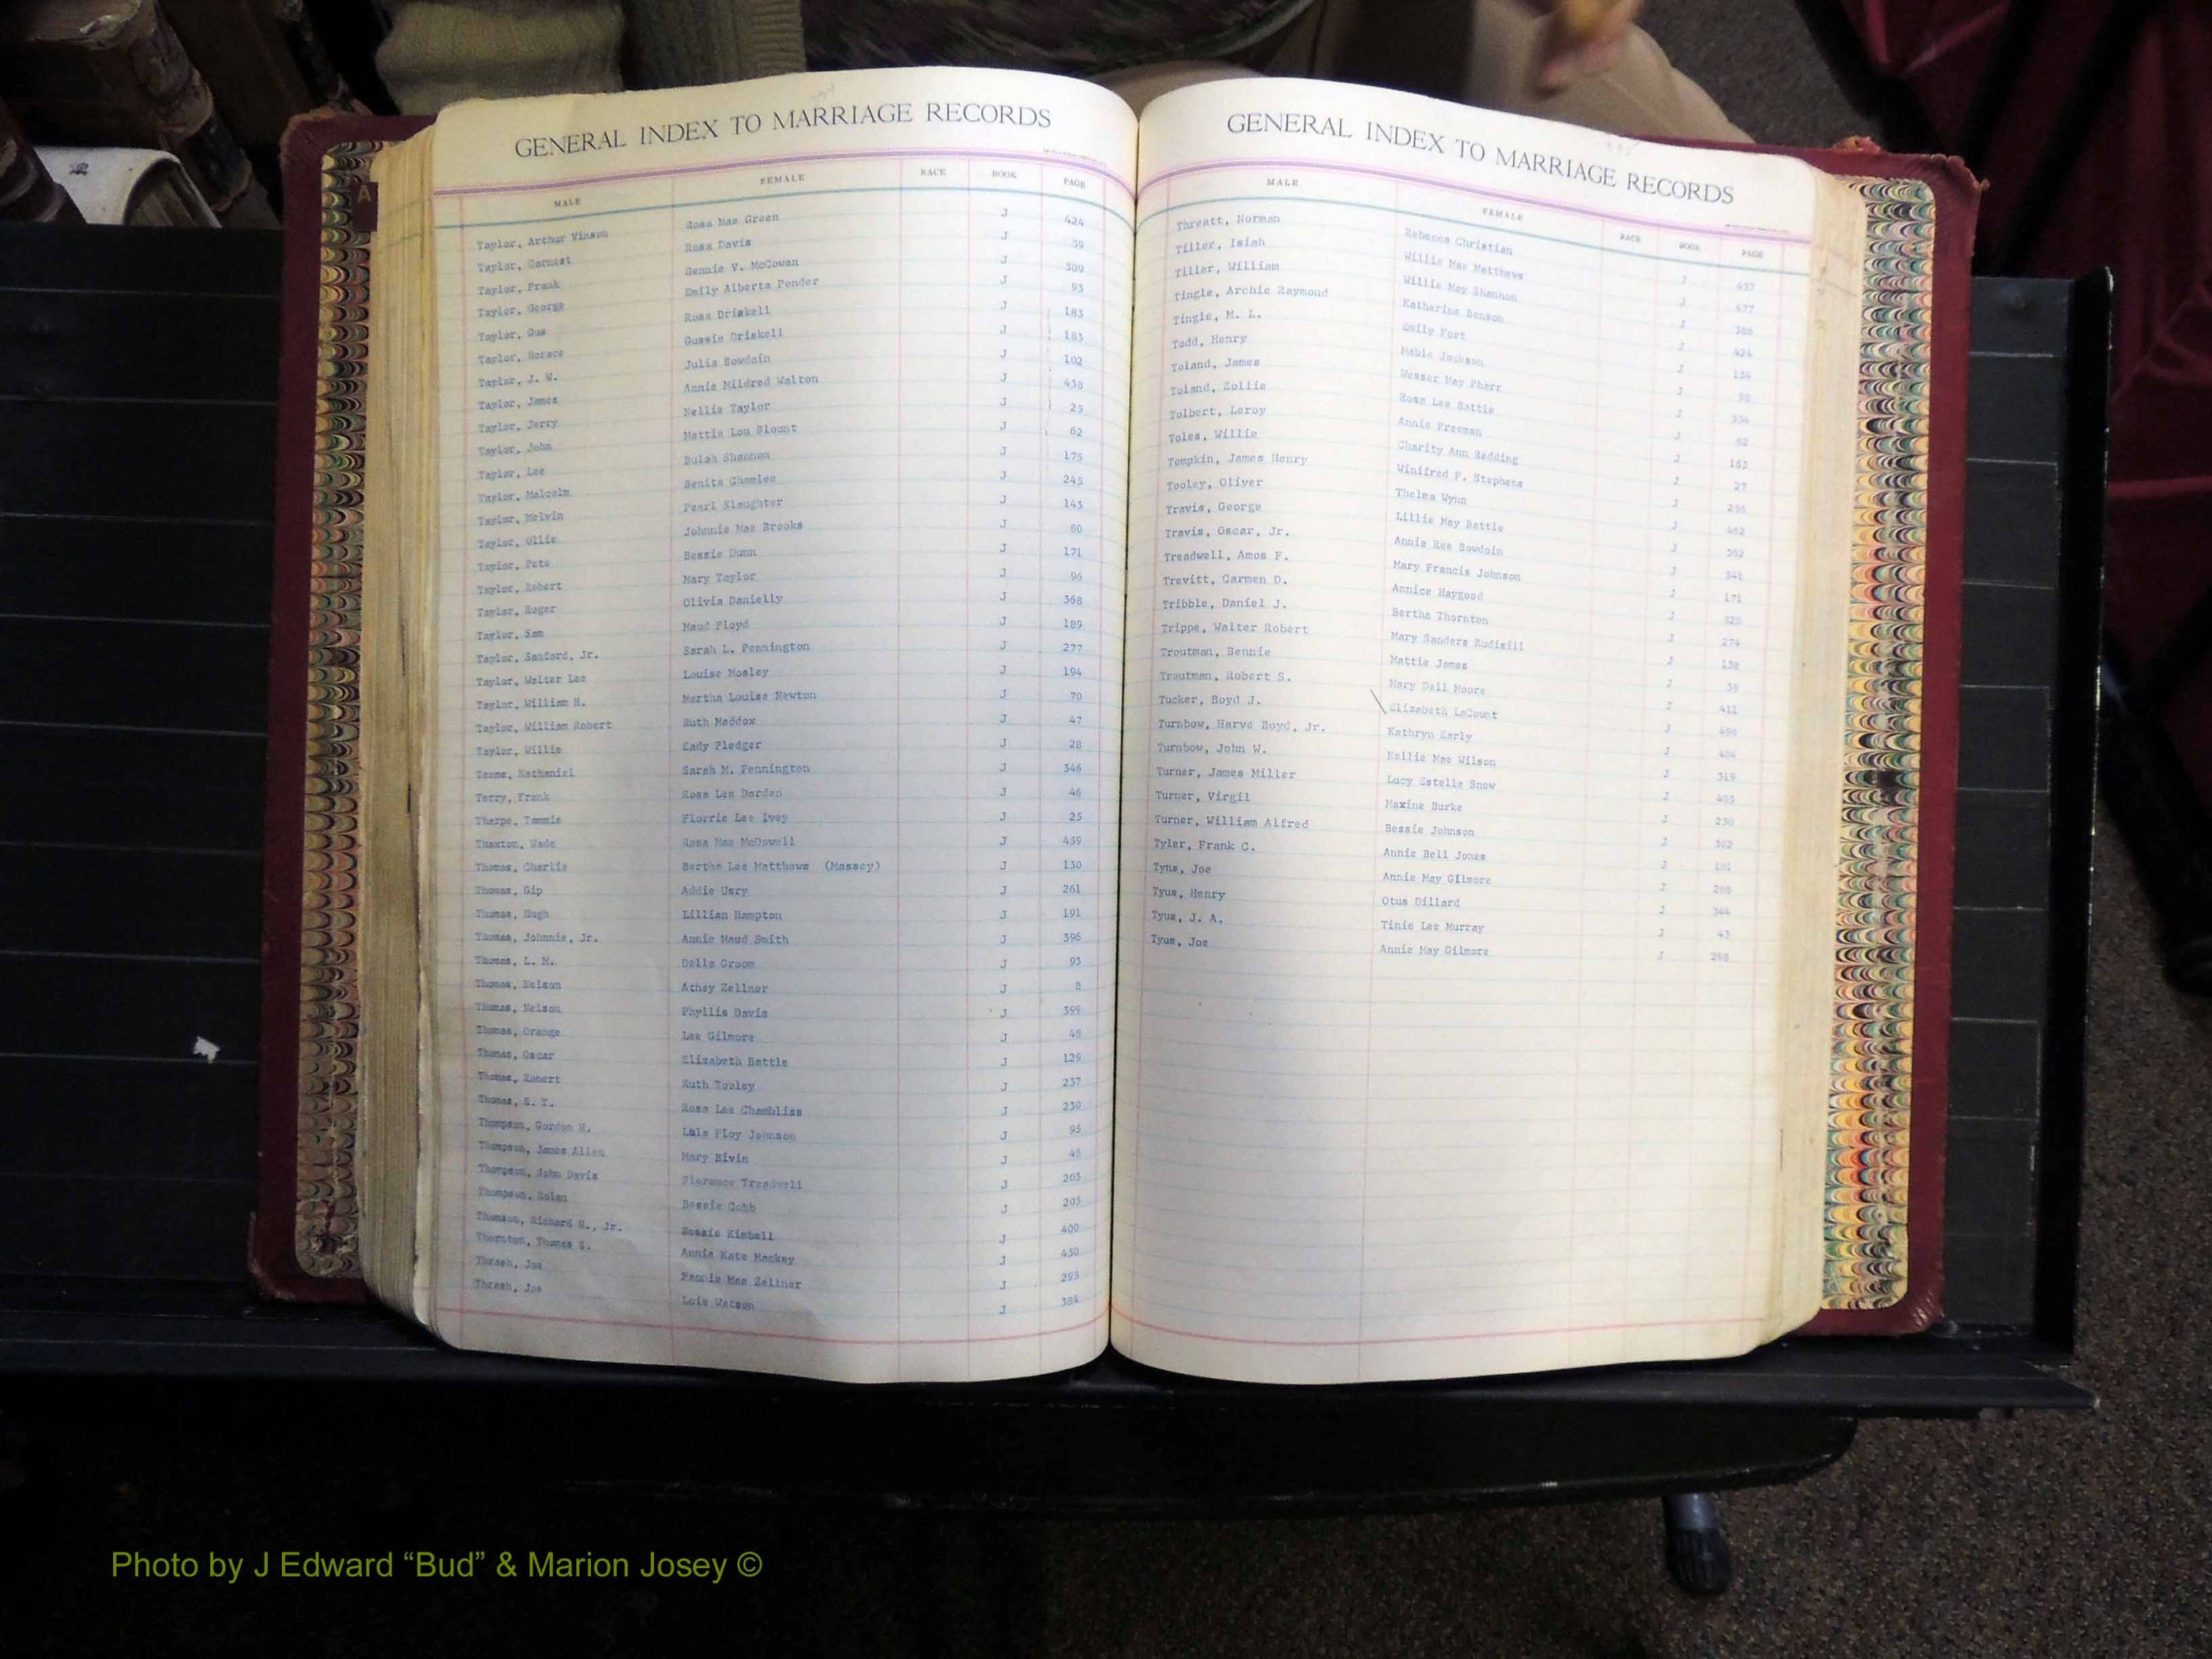 GENERAL INDEX TO MARRIAGE RECORDS
MALE FEMALE RACE BOOK PAGE
Taylor, Arthur Vinson Rosa Mae Green J 424
Taylor, Earnest Rosa Davis J 39
Taylor, Frank Gennie V. McCowan J 309
Taylor, George Emily Alberta Ponder J 93
Taylor, Gus Rosa Driskell J 183
Taylor, Horace Gussie Driskell J 183
Taylor, J. W. Julia Bowdoin J 102
Taylor, James Annie Mildred Walton J 438
Taylor, Jerry Nellie Taylor J 25
Taylor, John Mattie Lou Blount J 62
Taylor, Lee Bulah Shannon J 175
Taylor, Malcolm Benita Ghamlee J 245
Taylor, Melvin Pearl Slaughter J 143
Taylor, Ollie Johnnie Mae Brooks J 80
Taylor, Pete Bessie Dunn J 171
Taylor, Robert Mary Taylor J 96
Taylor, Roger Olivia Danielly J 368
Taylor, Sam Maud Floyd J 189
Taylor, Sanford, Jr. Sarah L. Pennington J 277
Taylor, Walter Lee Louise Mosley J 194
Taylor, William H. Martha Louise Newton J 70
Taylor, William Robert Ruth Maddox J 47
Taylor, Willie Eady Pledger J 28
Teems, Nathaniel Sarah M. Pennington J 346
Terry, Frank Rosa Lee Darden J 46
Tharpe, Tommie Florrie Lee Ivey J 25
Thaxton, Wade Rosa Mae McDowell J 459
Thomas, Charlie Bertha Lee Matthews (Massey) J 130
Thomas, Gip Addie Usry J 261
Thomas, Hugh Lillian Hampton J 191
Thomas, Johnnie, Jr. Annie Maud Smith J 396
Thomas, L. M. Della Groom J 93
Thomas, Nelson Athey Zellner J 8
Thomas, Nelson Phyllis Davis J 399
Thomas, Orange Lee Gilmore J 48
Thomas, Oscar Elizabeth Battle J 129
Thomas, Robert Ruth Tooley J 237
Thomas, S. T. Rosa Lee Chambliss J 230
Thompson, Gordon H. Lula Floy Johnson J 95
Thompson, James Allen Mary Bivin J 45
Thompson, John Davis Florence Treadwell J 203
Thompson, Rolan Bessie Cobb J 205
Thomson, Richard H., Jr. Bessie Kimbell J 400
Thornton, Thomas S. Annie Kate Mackey J 450
Thrash, Joe Fannie Mae Zellner J 295
Thrash, Joe Lois Watson J 384
GENERAL INDEX TO MARRIAGE RECORDS
MALE FEMALE RACE BOOK PAGE
Threatt, Norman Rebecca Christian J 437
Tiller, Isiah Willie Mae Matthews J 477
Tiller, William Willie May Shannon J 386
Tingle, Archie Raymond Katherine Benson J 424
Tingle, M. L. Emily Fort J 134
Todd, Henry Mable Jackson J 90
Toland, James Wesser May Pharr J 334
Toland, Zollie Rosa Lee Battle J 62
Tolbert, Leroy Annie Freeman J 163
Toles, Willie Charity Ann Redding J 27
Tompkin, James Henry Winifred P. Stephens J 256
Tooley, Oliver Thelma Wynn J 462
Travis, George Lillie May Battle J 362
Travis, Oscar, Jr. Annie Ree Bowdoin J 341
Treadwell, Amos F. Mary Francis Johnson J 171
Trevitt, Carmen D. Annice Haygood J 320
Tribble, Daniel J. Bertha Thornton J 274
Trippe, Walter Robert Mary Sanders Rudisill J 138
Troutman, Bennie Mattie James J 39
Troutman, Robert S. Mary Dell Moore J 411
Tucker, Boyd J. Elizabeth LeCount J 496
Turnbow, Harve Boyd, Jr. Kathryn Early J 404
Turnbow, John W. Nellie Mae Wilson J 319
Turner, James Miller Lucy Estelle Snow J 403
Turner, Virgil Maxine Burke J 250
Turner, William Alfred Bessie Johnson J 302
Tyler, Frank C. Annie Bell Jones J 101
Tyns, Joe Annie May Gilmore J 268
Tyus, Henry Otus Dillard J 344
Tyus, J. A. Tinie Lee Murray J 43
Tyus, Joe Annie May Gilmore J 268
A
Photo by J Edward “Bud” & Marion Josey ©